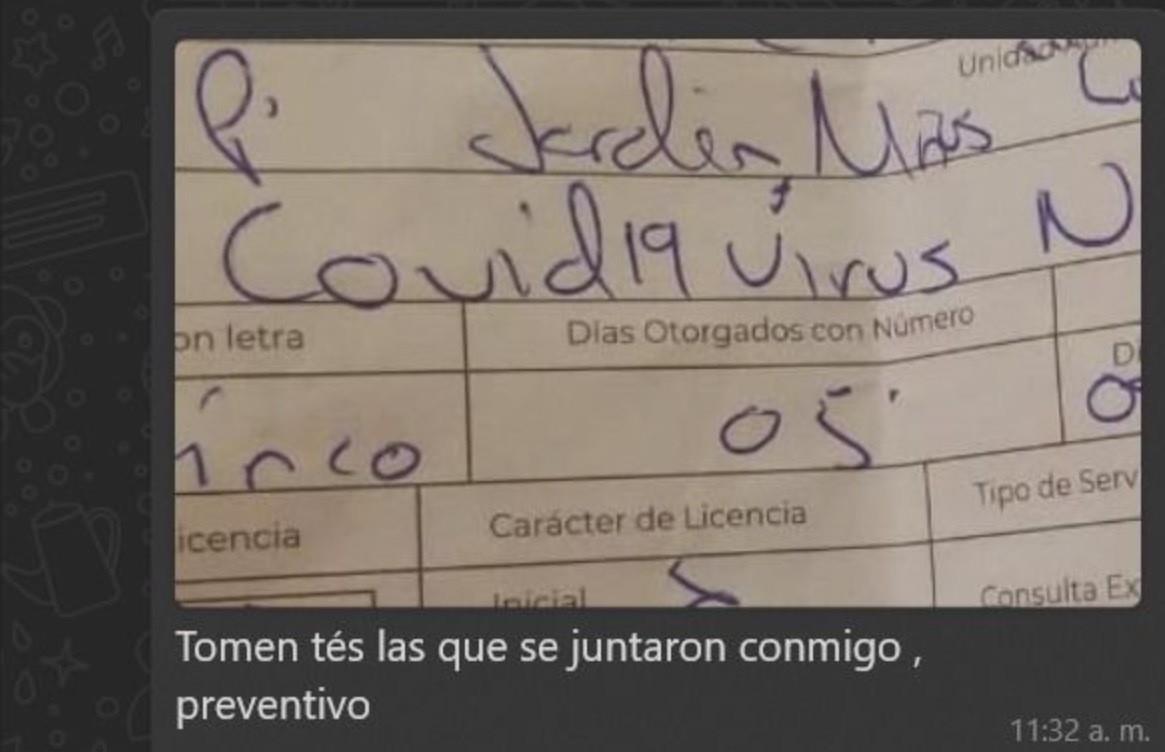 Unidad
P. Jardín Niños
Covid19 virus N
on letra Días Otorgados con Número
inco 05 D
icencia Carácter de Licencia Tipo de Serv
Inicial Consulta Ex
Tomen tés las que se juntaron conmigo ,
preventivo
11:32 a. m.